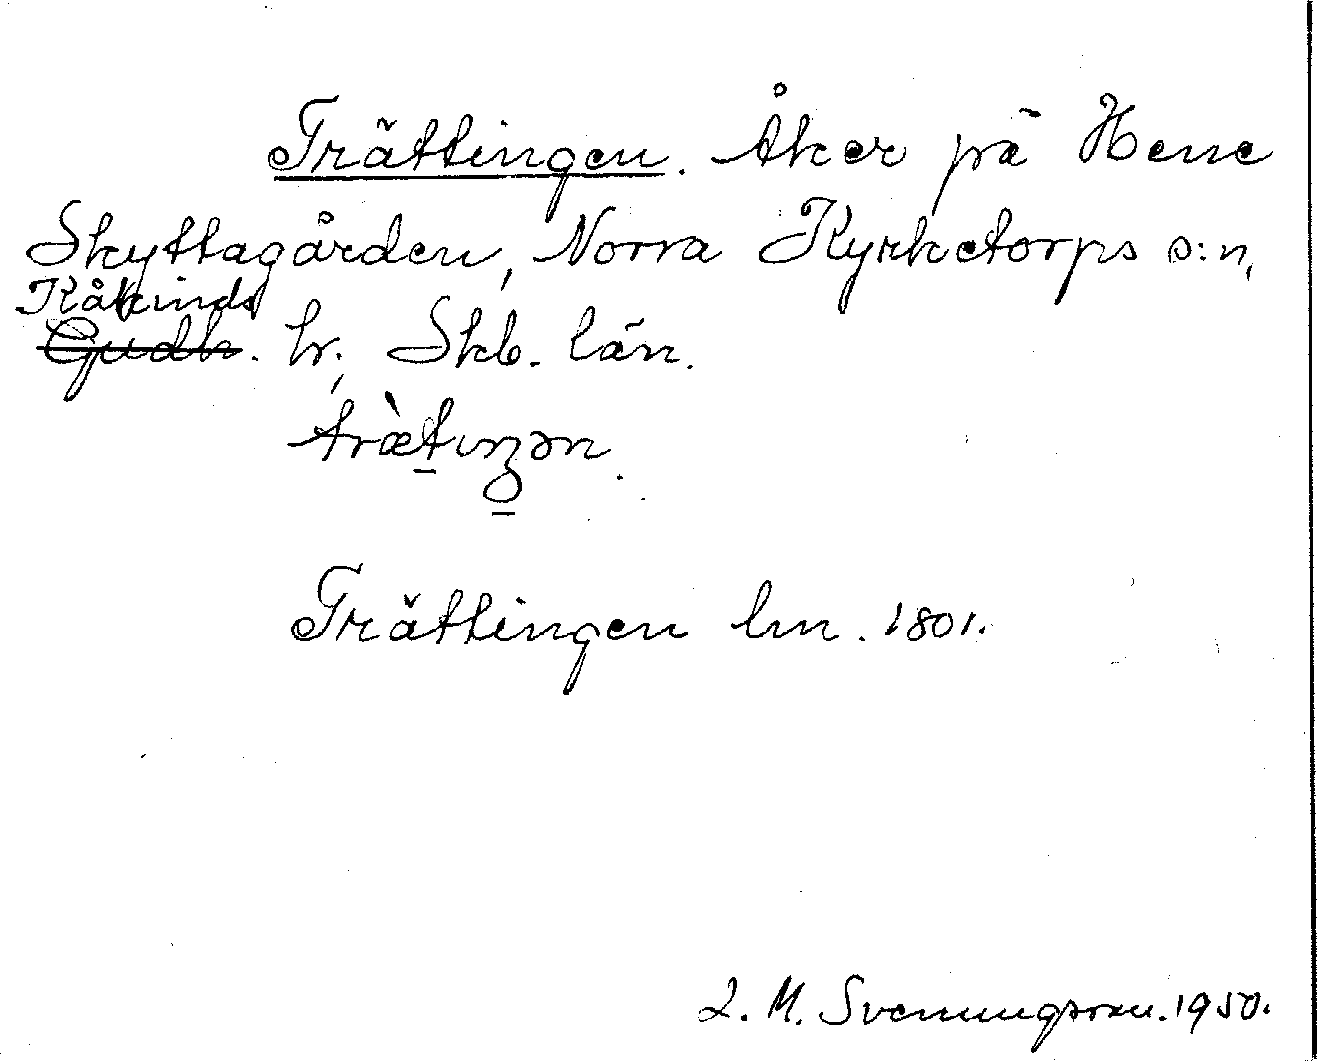 Trättingen. Åker på Hene
Skyttagården, Norra Kyrketorps s:n,
Kåkinds
Gudh. hr, Skb. län.
træ̀tıŋən.
Trättingen lm. 1801.
L. M. Svenungsson. 1950.